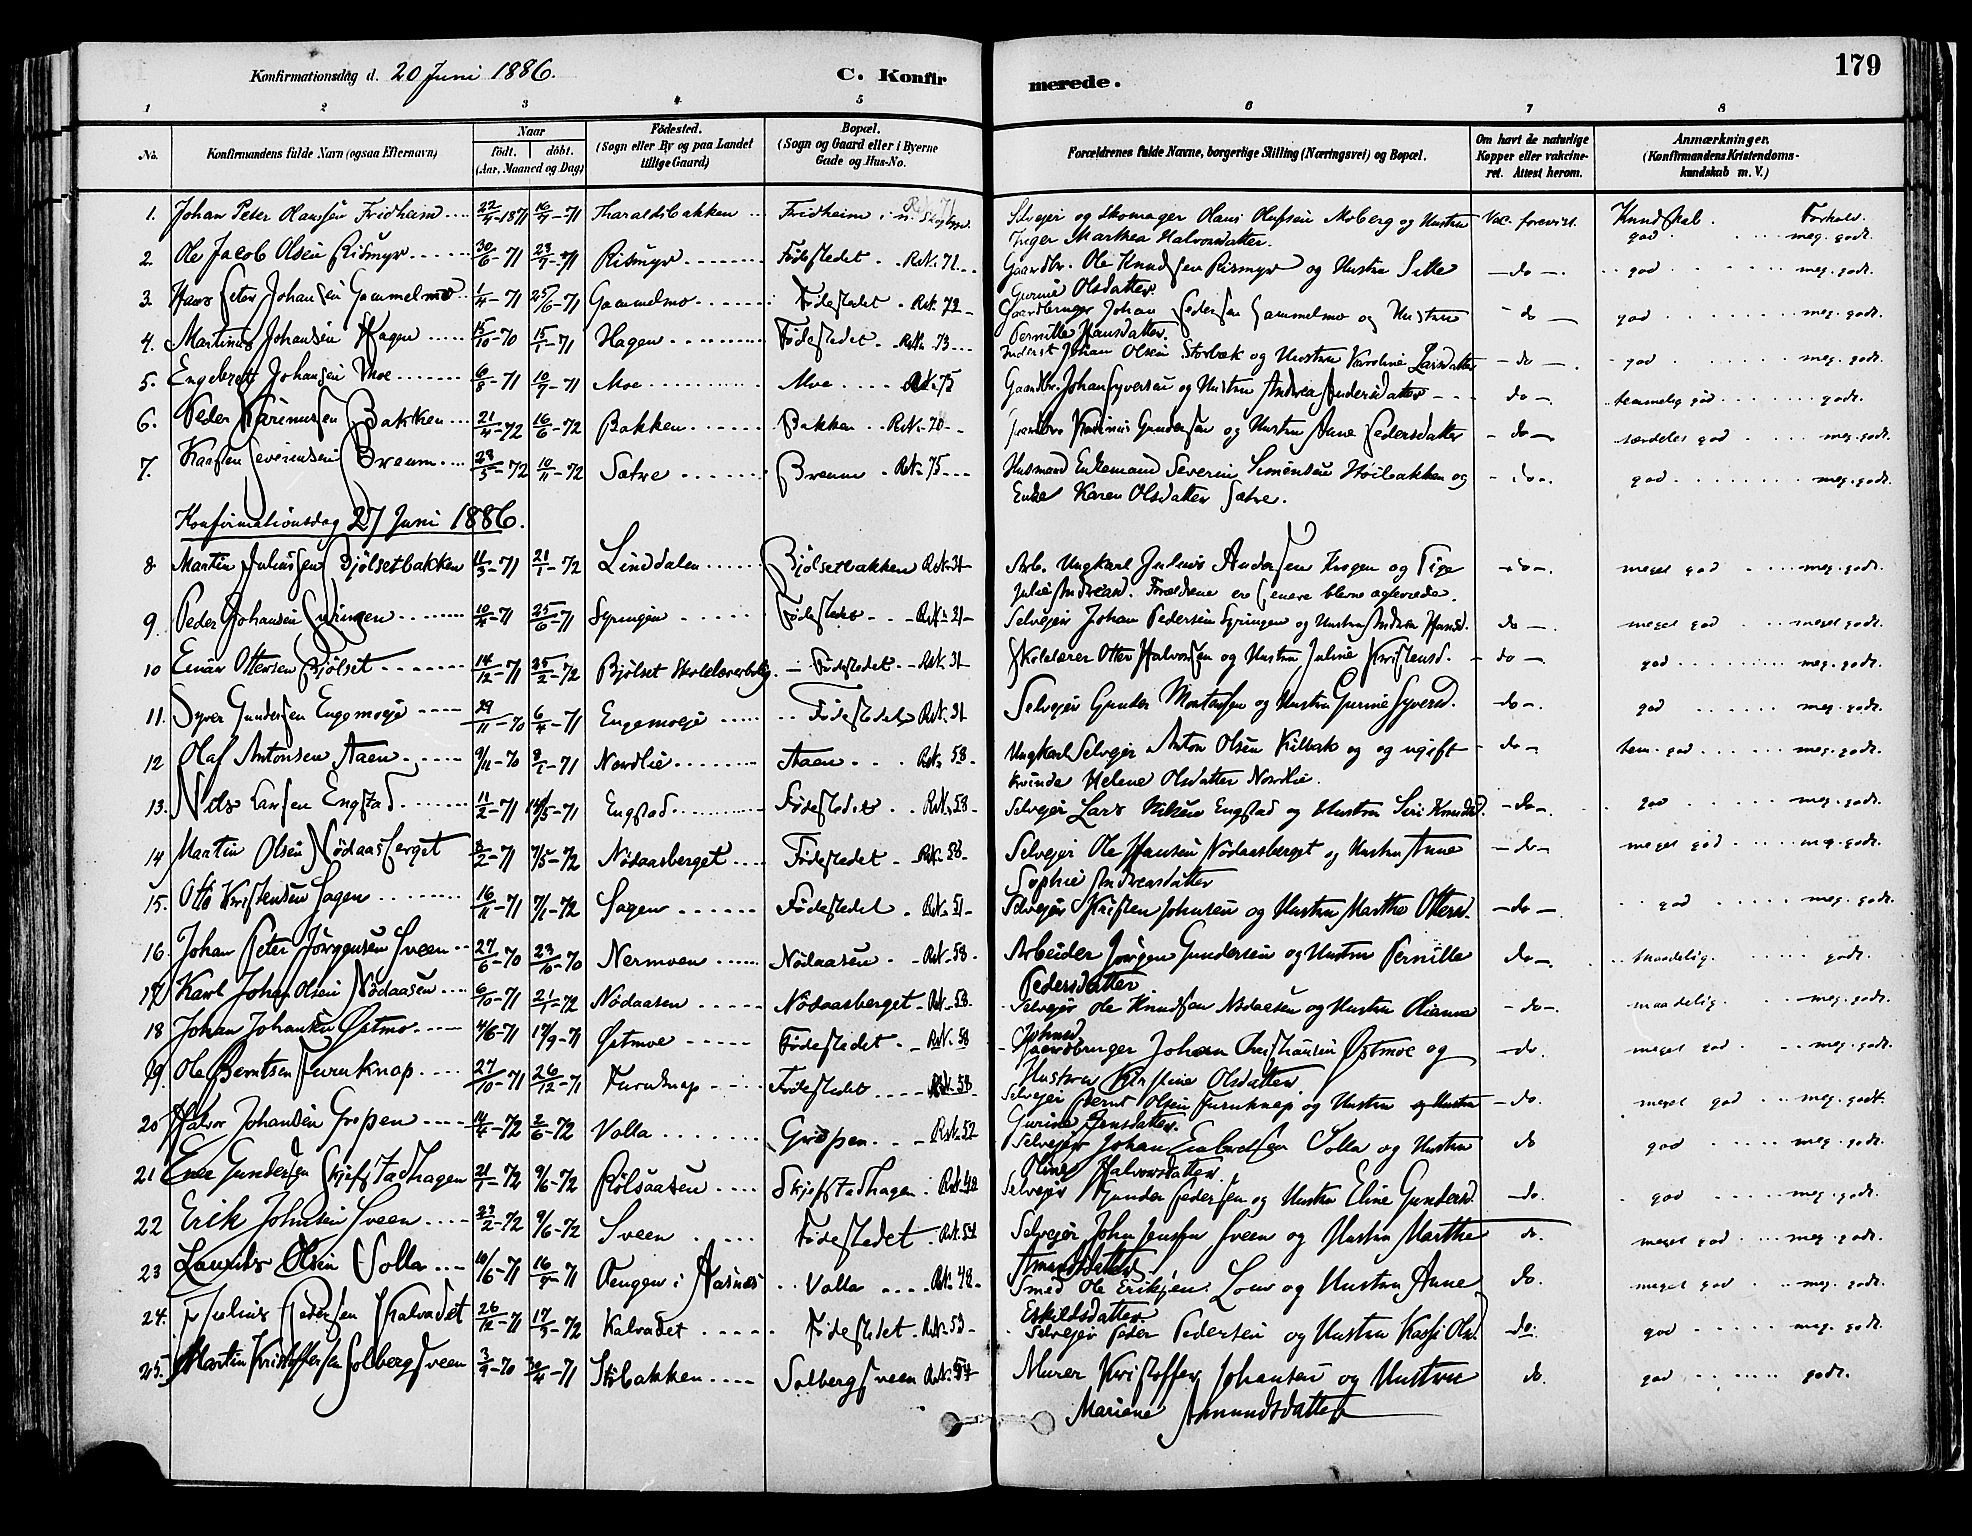 Konfirmationsdag d. 20 Juni 1886. C. Konfirmerede. 179
1 2 3 4 5 6 7 8
No. Konfirmandens fulde Navn (ogsaa Efternavn) Naar født. døbt. (Aar, Maaned og Dag) Fødested. (Sogn eller By og paa Landet tillige Gaard) Bopæl. (Sogn og Gaard eller i Byerne Gade og Hus-No. Forældrenes fulde Navne, borgerlige Stilling (Næringsvei) og Bopæl. Om havt de naturlige Kopper eller vakcineret. Attest herom. Anmærkninger. (Konfirmandens Kristendomskundskab m. V.)
Kundskab. Forhold.
1. Johan Peter Olaussen Fridheim 22/4-1871 16/7-71 Tharaldsbakken Fridheim Selveier og Skomager Olaus Olufsen Moberg og Hustru Vac. forevist. god meg. godt.
Inger Marthea Halvorsdatter.
2. Ole Jacob Olsen Rismyr 30/6-71 23/7-71 Rismyr Fødestedet Rk. 71 Gaardbr. Ole Knudsen Rismyr og Hustru -do- god meg. godt.
Gurine Olsdatter.
3. Hans Peter Johansen Gammelmo 1/4-71 25/6-71 Gammelmo Fødestedet Rk. 72 Gaardbruger Johan Pedersen Gammelmo og Hustru -do- god meg. godt.
Pernille Hansdatter.
4. Martinus Johansen Hagen 15/10-70 15/1-71 Hagen Fødestedet Rk. 73 Inderst Johan Olsen Storbæk og Hustru Karoline Larsdatter -do- god meg. godt.
5. Engebret Johansen Moe 6/8-71 10/9-71 Moe Moe Rk. 75 Gaardbr. Johan Syversen og Hustru Andrea Andersdatter do temmelig god godt.
6. Peder Karinussen Bakken 21/4-72 16/6-72 Bakken Bakken Rk. 70 Karinus Gundersen og Hustru Anne Pedersdatter -do- særdeles god meg. godt.
7. Severinsen Breum 23/5-72 10/11-72 Sætre Breum Rk. 75 Husmand Enkemand Severin Simensen Hvilbakken og -do- god meg. godt.
Enke Karen Olsdatter Sætre.
Konfirmationsdag 27 Juni 1886.
8 Martin Juliussen Bjølsetbakken 11/3-71 21/1-72 Linddalen Bjølsetbakken Rk. 31 Arb. Ungkarl Julius Andersen Krogen og Pige -do- meget god meg. godt.
Julie Andreasd. Forældrene er senere blevne ægteviede.
9 Peder Johansen Syringen 10/4-71 25/6-71 Syringen Fødestedet Rk. 31 Selveier Johan Pedersen Syringen og Hustru Andrea Hansd. do meget god meget godt.
10 Einar Ottersen Bjølset 14/12-71 25/2-72 Bjølset Skolelærerbolig Fødestedet Rk. 31 Skolelærer Otter Halvorsen og Hustru Juline Kristensd. do god meg. godt.
11. Syver Gundersen Engemoeje 29/11-70 6/4-71 Engemoeje Fødestedet Rk. 31 Selveier Gunder Mortensen og Hustru Gurine Syversd. do god meg. godt.
12 Olaf Antonsen Aaen 9/11-70 8/1-71 Nordlie Aaen Rk. 58 Ungkarl Selveier Anton Olsen Kilbak og og ugift do tem. god meg. godt.
kvinde Helene Olsdatter Nordlie.
13. Nils Larsen Engstad 11/2-71 14/5-71 Engstad Fødestedet Rk. 58 Selveier Lars Nilsen Engstad og Hustru Siri Knudsd. -do- god meg. godt.
14 Martin Olsen Nødaasberget 8/2-71 7/5-72 Nødaasberget Fødestedet Rk. 58 Selveier Ole Hansen Nødaasberget og Hustru Anne -do- meget god meg. godt.
Sophie Andreasdatter
15. Otto Kristensen Sagen 16/11-71 7/1-72 Sagen Fødestedet Rk. 51 Selveier Kristen Johnsen og Hustru Marthe Ottersd. -do- god meg. godt.
16. Johan Peter Jørgensen Sveen 27/6-70 23/10-70 Nermoen Nødaasen Rk. 58 Arbeider Jørgen Gundersen og Hustru Pernille do maadelig. godt.
Pedersdatter
17 Karl Johan Olsen Nødaasen 6/10-71 21/1-72 Nødaasen Nødaasberget Rk. 58 Selveier Ole Knudsen Nødaasen og Hustru Olianna -do- maadelig meg. godt.
Johnsd.
18 Johan Johansen Østmo 4/6-71 17/9-71 Østmoe Fødestedet Rk. 58 Gaardbruger Johan Østmoe og -do. meget god meg. godt.
Hustru Kirstine Olsdatter
19. Ole Berntsen Furuknap 27/10-71 26/12-71 Furuknap Fødestedet Rk. 58 Selveier Bernt Olsen Furuknap og Hustru -do. meget god meg. godt.
Gurine Jensdatter.
20 Halvor Johansen Gropen 14/4-72 2/6-72 Volla Gropen Rk. 52 Selveier Johan Volla og Hustru do god meg. godt.
Oline Halvorsdatter.
21 Gundersen Skjefstadhagen 21/1-72 9/6-72 Rølsaasen Skjefstadhagen Rk. 48 Selveier Gunder Pedersen og Hustru Eline Gundersd. -do. god meg. godt.
22 Erik Johnsen Sveen 23/2-72 9/6-72 Sveen Fødestedet Rk. 54 Selveier John Jensen Sveen og Hustru Marthe do. meget god meg. godt.
Amundsdatter
23 Laurits Olsen Volla 10/6-71 16/7-71 i Aasnes Volla Rk. 48 Smed Ole Eriksen og Hustru Anne do. meget god meg. godt.
Eskildsdatter.
24. Julius Pedersen Kalvadet 26/12-71 17/3-72 Kalvadet Fødestedet Rk. 53 Selveier Peder Pedersen og Hustru Kassi Olsd. -do. god meg. godt.
25. Martin Kristoffersen Solbergsveen 3/9-70 30/4-71 Stibakken Solbergsveen Rk. 54 Murer Kristoffer Johansen og Hustru do. god godt.
Mariene Amundsdatter